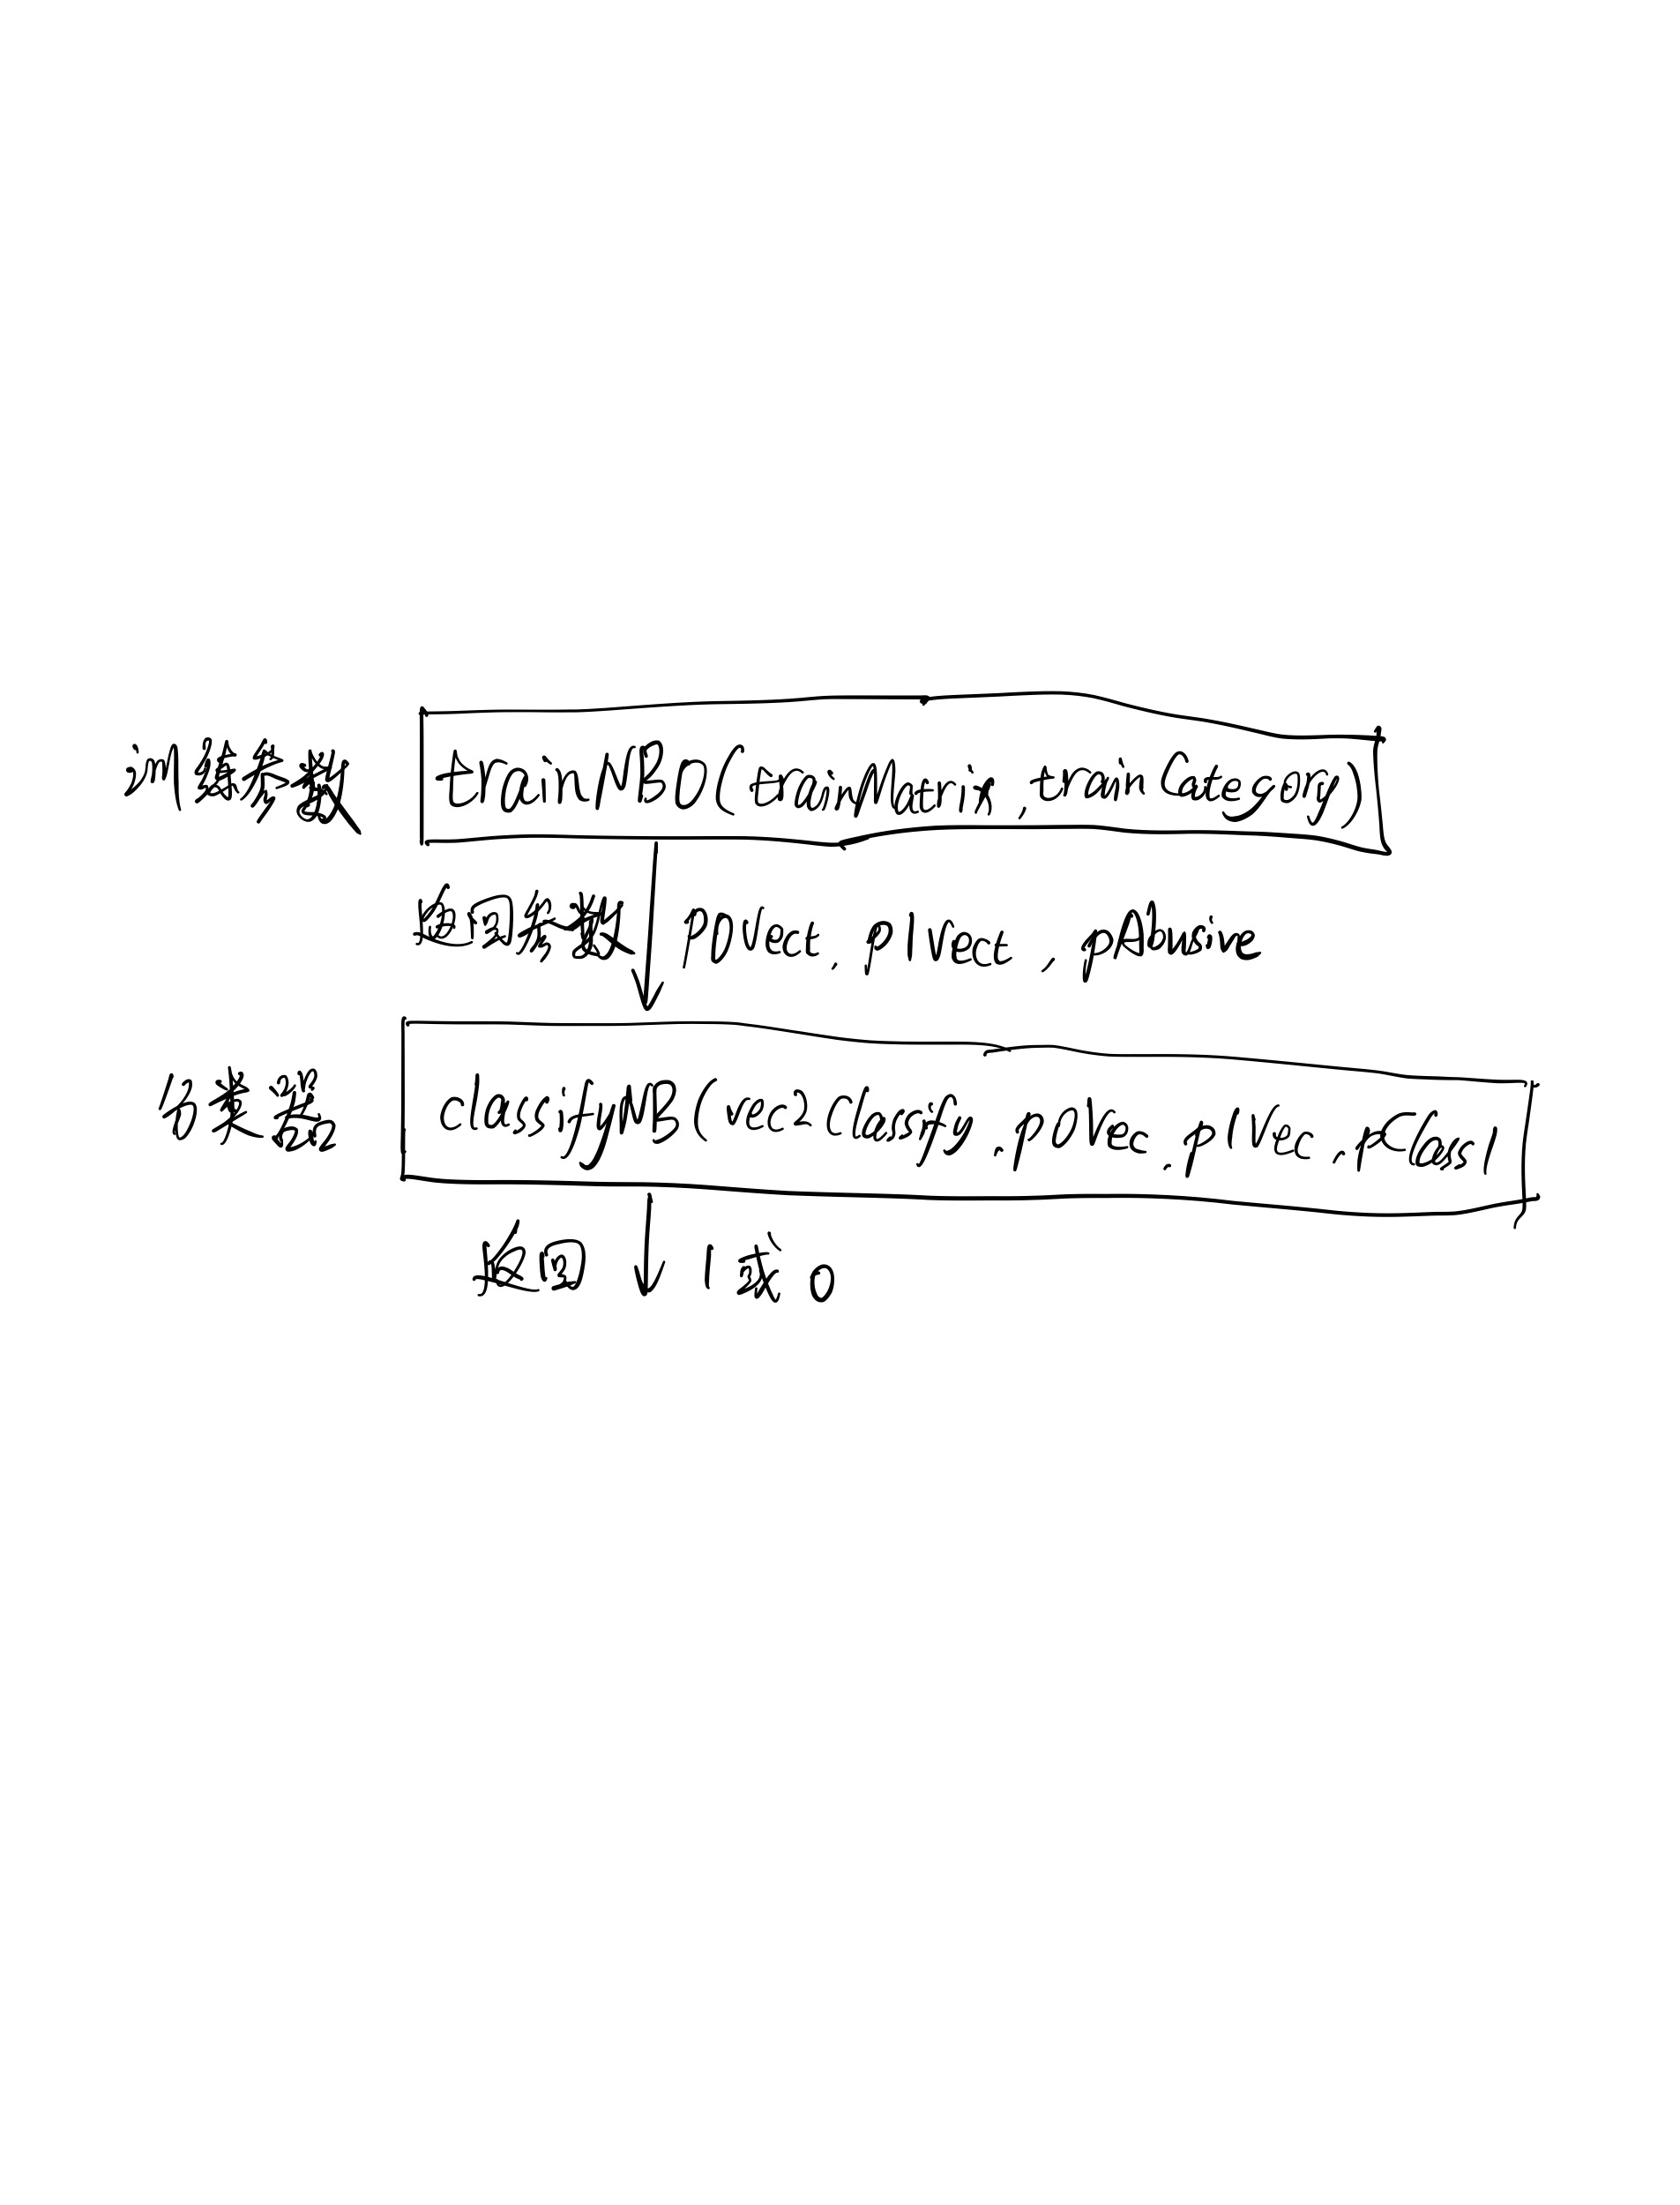 训练参数 trainNB0(trainMatrix, trainCategory)
返回参数 p0Vect, p1Vect, pAbusive
分类器 classifyNB(vec2Classify, p0Vec, p1Vec, pClass1
返回 1或0